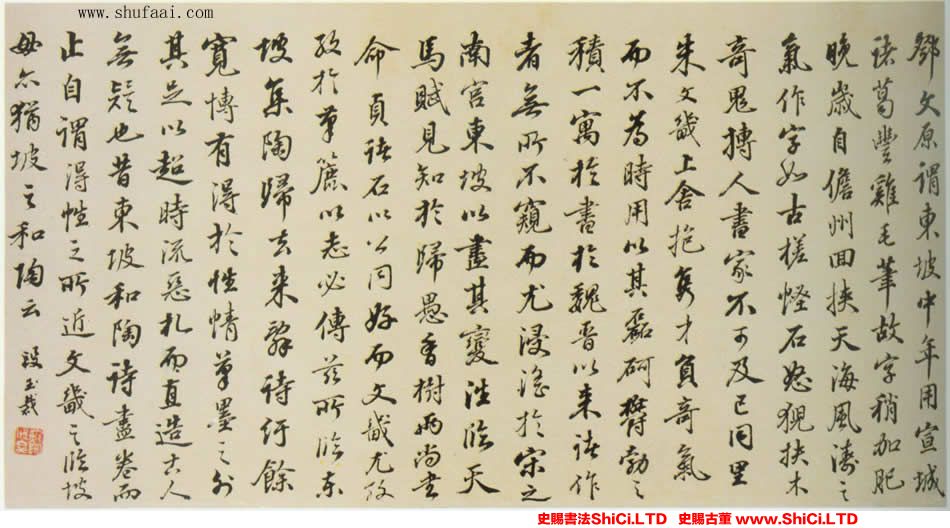 www.shufaai.com
鄧文原謂東坡中年用宣城
諸葛豐雞毛筆故字稍加肥
晚歲自儋州回挾天海風濤之
氣作字如古槎怪石怒猊扶木
奇鬼摶人書家不可及已同里
朱文畿上舍抱雋才負奇氣
而不為時用以其磊砢鬱勃之
積一寓於書於魏晉以來諸作
者無所不窺而尤浸淫於宋之
南宮東坡以盡其變注臨天
馬賦見知於歸愚香樹兩尚書
命貞諸石以公同好而文畿尤
於草麓以志必傳茲所臨東
坡集陶歸去來辭詩行餘
寬博有得於性情筆墨之外
其足以超時流惡札而直造古人
無疑也昔東坡和陶詩盡卷而
止自謂得性之所近文畿之臨坡
毋亦猶坡之和陶云 段玉裁
史賜書法ShiCi.LTD 史賜古董 www.ShiCi.LTD